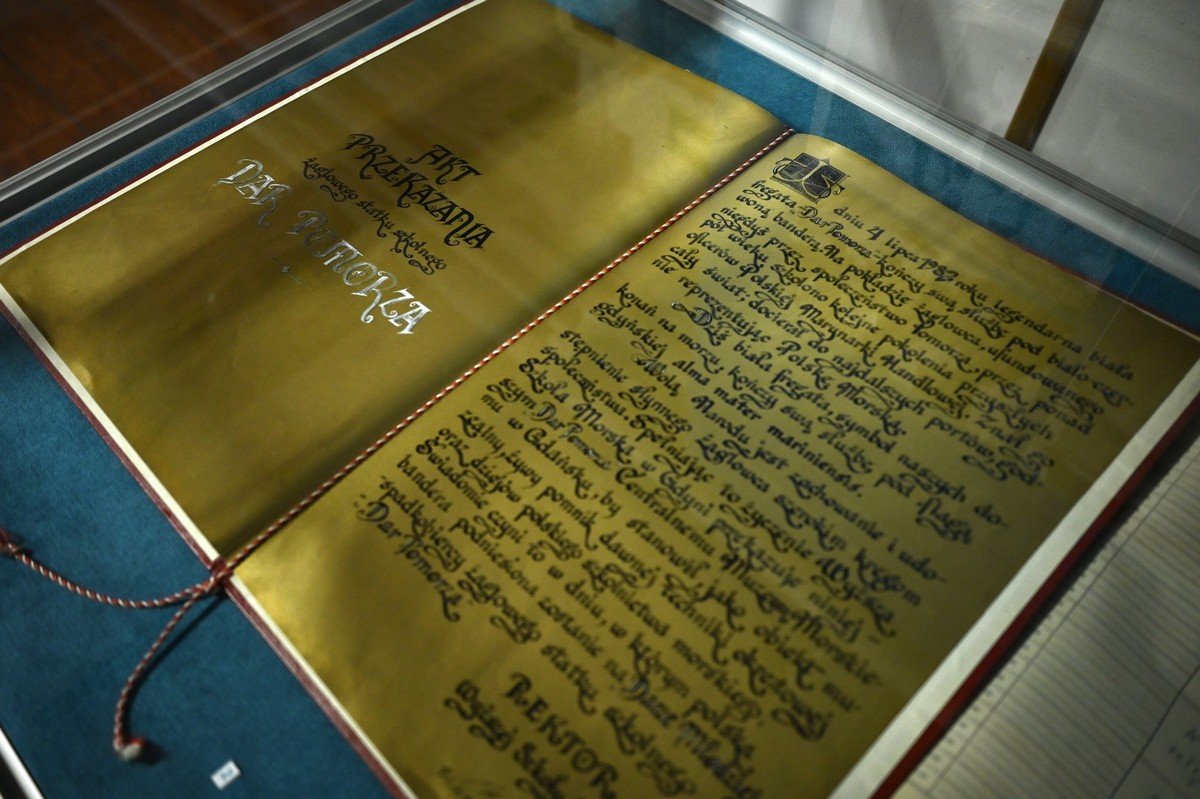 AKT
PRZEKAZANIA
żaglowego statku szkolnego
DAR POMORZA
dniu 4 lipca 1982 roku legendarna biała
fregata „Dar Pomorza” kończy swą służbę pod biało-czer-
woną banderą. Na pokładzie żaglowca ufundowanego
niegdyś przez społeczeństwo Pomorza, przez ponad
pół wieku szkolono kolejne pokolenia przyszłych
oficerów Polskiej Marynarki Handlowej. Znał
cały świat, docierał do najdalszych portów, god-
nie reprezentując Polskę Morską.
Dziś biała fregata, symbol naszych do-
konań na morzu, kończy swą służbę pod flagą
gdyńskiej „alma mater mariniensis”.
Wolą Narodu jest zachowanie i udo-
stępnienie słynnego żaglowca szerokim kręgom
społeczeństwa. Spełniając to życzenie Wyższa
Szkoła Morska w Gdyni przekazuje niniej-
szym „Dar Pomorza” Centralnemu Muzeum Morskie-
mu w Gdańsku, by stanowił jako obiekt mu-
zealny żywy pomnik dawnej techniki okrętowej
oraz dziejów polskiego szkolnictwa morskiego.
Świadomie czyni to w dniu, w którym polska
bandera podniesiona zostanie na „Darze
- spadkobiercy żaglowego statku szkolnego
„Dar Pomorza”.
REKTOR
Wyższej